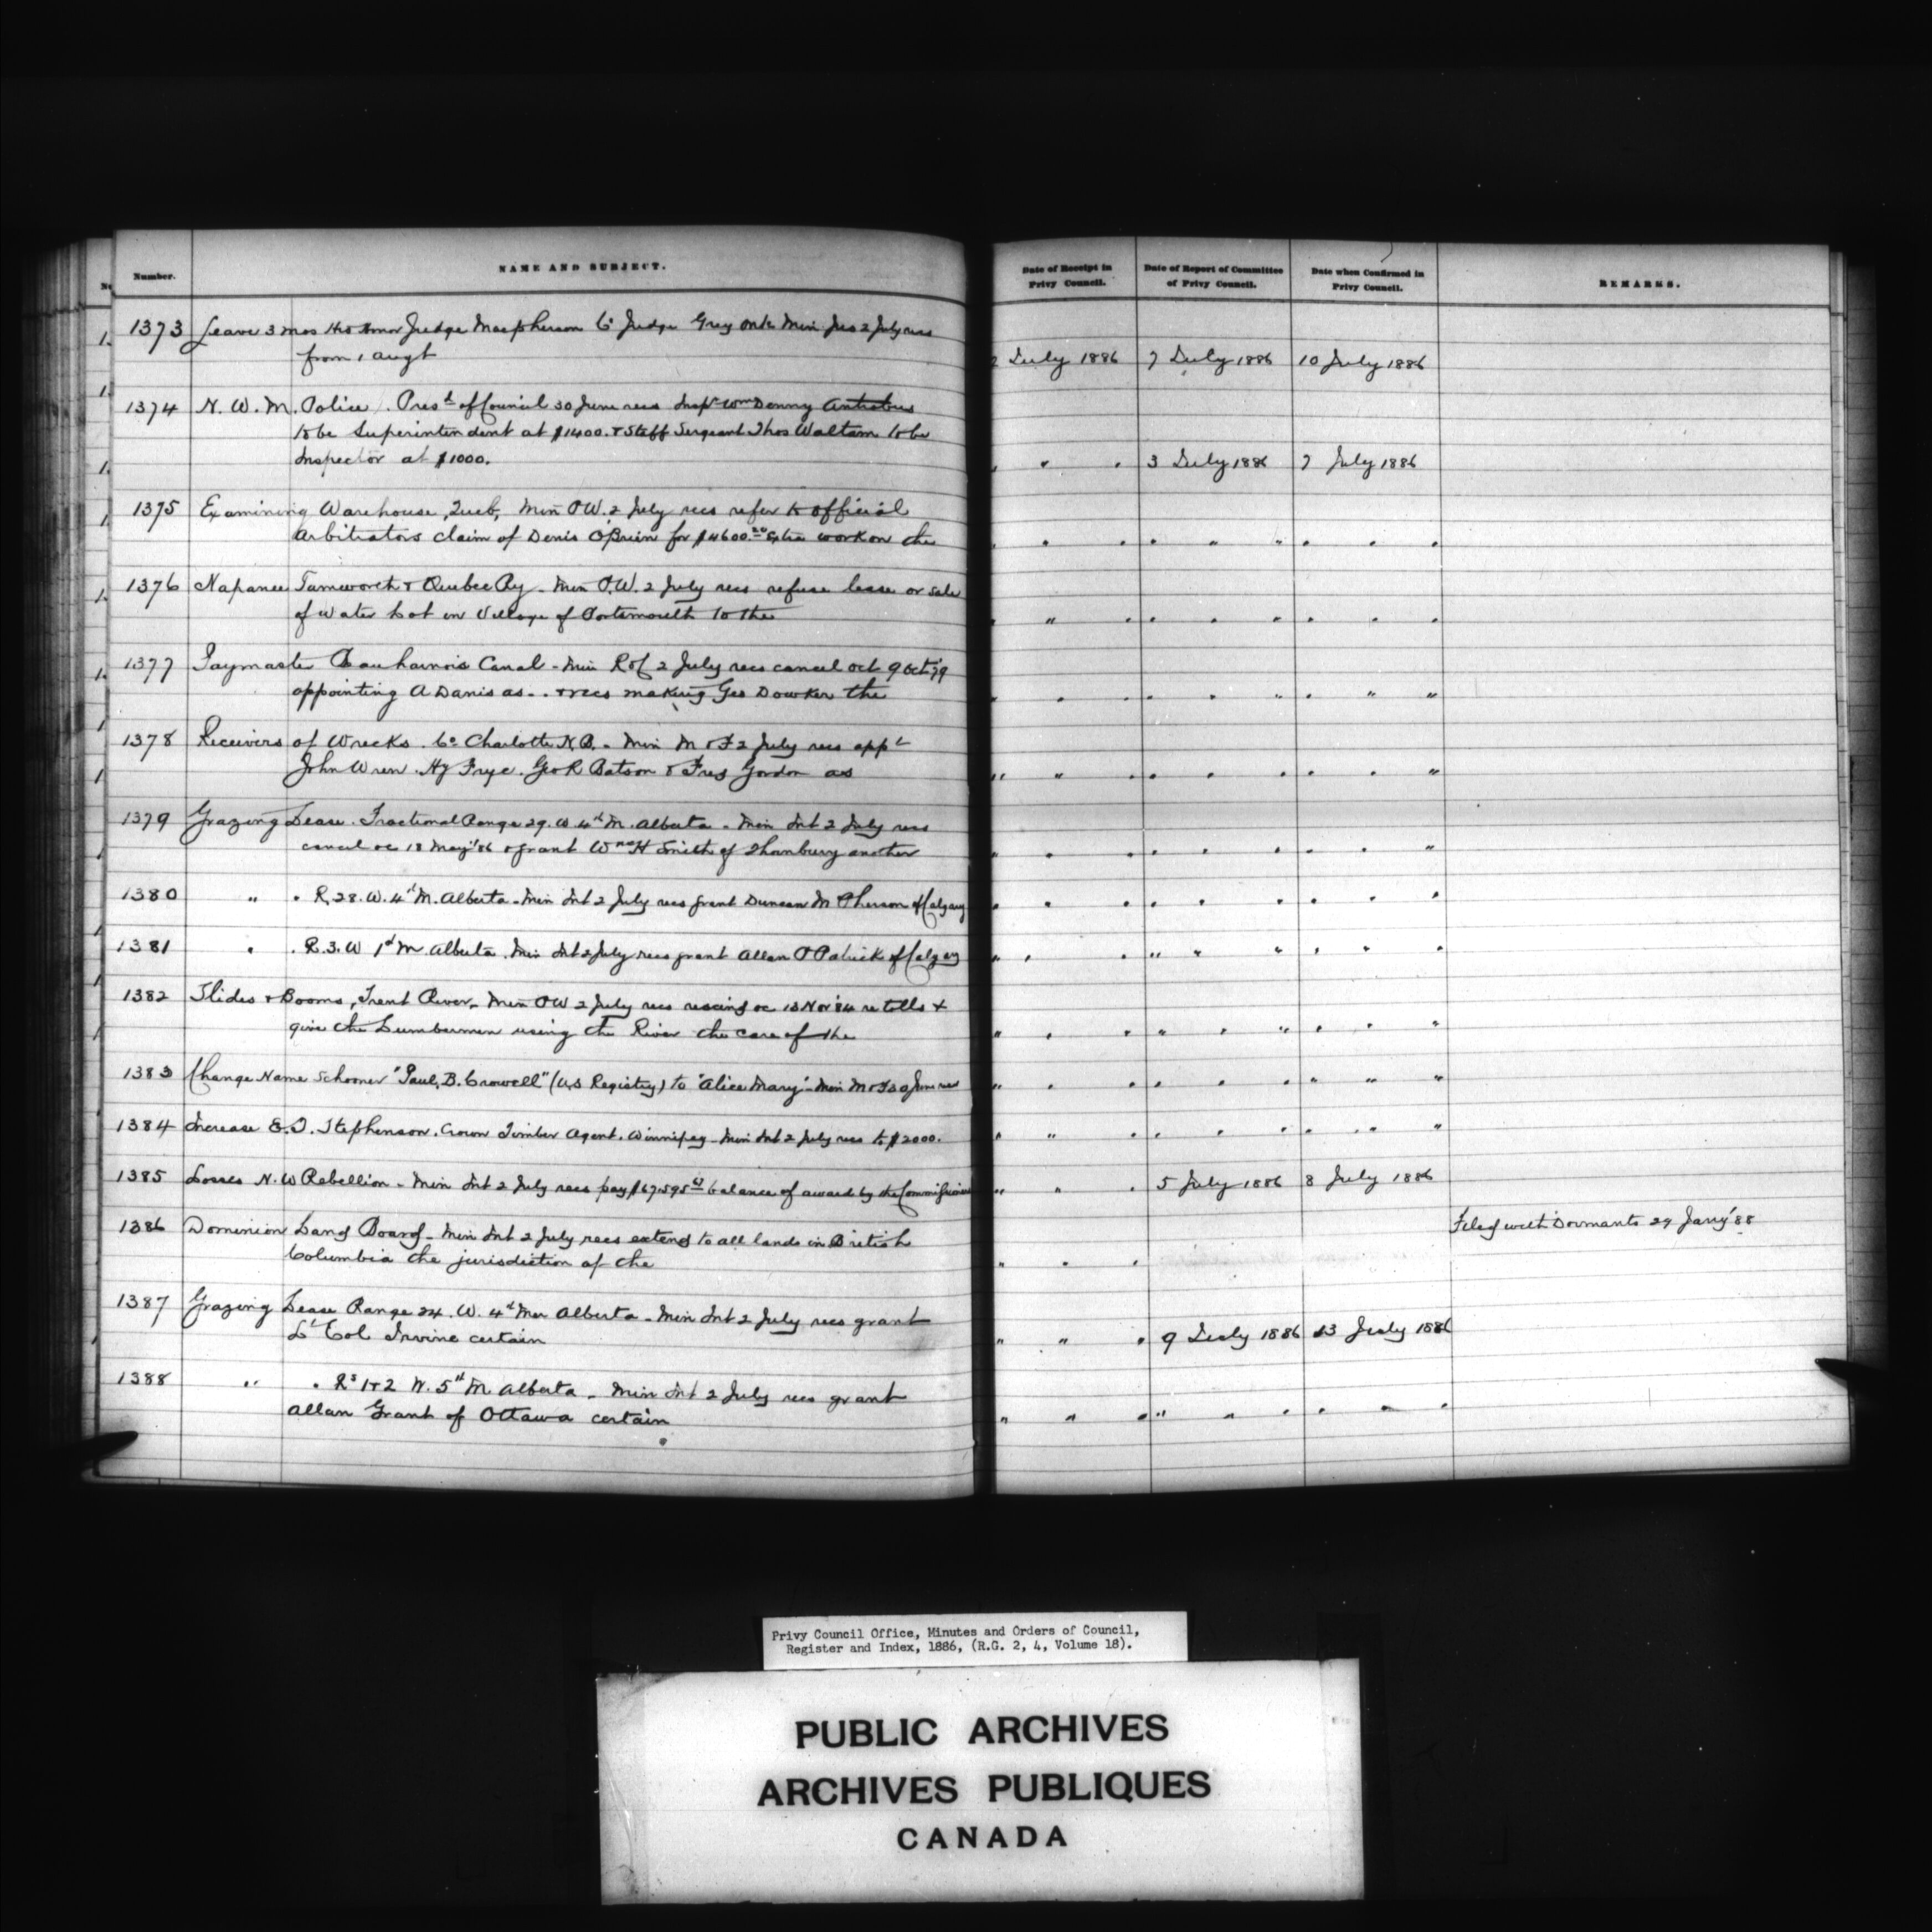 Number. NAME AND SUBJECT. Date of Receipt in Privy Council. Date of Report of Committee of Privy Council. Date when Confirmed in Privy Council. REMARKS.
1373 Leave 3 mos His Honor Judge Macpherson Co Judge Grey Ont Min Jus 2 July recs
from 1 augt 2 July 1886 7 July 1886 10 July 1886
1374 N. W. M. Police. Presdt of Council 30 June recs Inspr Wm Denny Antrobus
to be Superintendent at $1400. & Staff Sergeant Thos Waltam to be
Inspector at $1000. " " " 3 July 1886 7 July 1886
1375 Examining Warehouse, Queb, Min P.W. 2 July recs refer to official
Arbitrators claim of Denis O'Brien for $4600.20 Extra work on the " " " " " " " " "
1376 Napanee Tamworth & Quebec Ry - Min P.W. 2 July recs refuse lease or sale
of Water Lot in Village of Portsmouth to the " " " " " " " " "
1377 Paymaster Beauharnois Canal - Min R & C 2 July recs cancel oc 9 Oct '79
appointing A Danis as . . & recs making Geo Dowker the " " " " " " " " "
1378 Receivers of Wrecks. Co Charlotte N.B. - Min M & F 2 July recs appt
John Wren. Hy Frye. Geo R Batson & Jres Gordon as " " " " " " " " "
1379 Grazing Lease. Fractional Range 29. W. 4th M. Alberta - Min Int 2 July recs
cancel oc 18 May '86 & grant Wm H Smith of Thornbury another " " " " " " " " "
1380 " " R. 28. W. 4th M. Alberta - Min Int 2 July recs grant Duncan McPherson of Calgary " " " " " " " " "
1381 " " R. 3. W 1st M Alberta. Min Int 2 July recs grant Allan P Patrick of Calgary " " " " " " " " "
1382 Slides & Booms, Trent River - Min P W 2 July recs rescind oc 13 Nov '84 re tolls &
give the Lumbermen using the River the care of the " " " " " " " " "
1383 Change Name Schooner "Paul B. Crowell" (U.S Registry) to "Alice Mary" - Min M & F 30 June recs " " " " " " " " "
1384 Increase E. F. Stephenson. Crown Timber Agent. Winnipeg - Min Int 2 July recs to $2000. " " " " " " " " "
1385 Losses N. W Rebellion - Min Int 2 July recs pay $67.595 balance of award by the Commission " " " 5 July 1886 8 July 1886
1386 Dominion Land Board - Min Int 2 July recs extend to all lands in British Filed with Dormants 29 Jany '88
Columbia the jurisdiction of the " " "
1387 Grazing Lease Range 24. W. 4th Mer Alberta - Min Int 2 July recs grant
Lt Col Irvine certain " " " 9 July 1886 13 July 1886
1388 " " Rs 1 & 2 W. 5th M. Alberta - Min Int 2 July recs grant
Allan Grant of Ottawa certain " " " " " " " " "
Privy Council Office, Minutes and Orders of Council,
Register and Index, 1886, (R.G. 2, 4, Volume 18).
PUBLIC ARCHIVES
ARCHIVES PUBLIQUES
CANADA